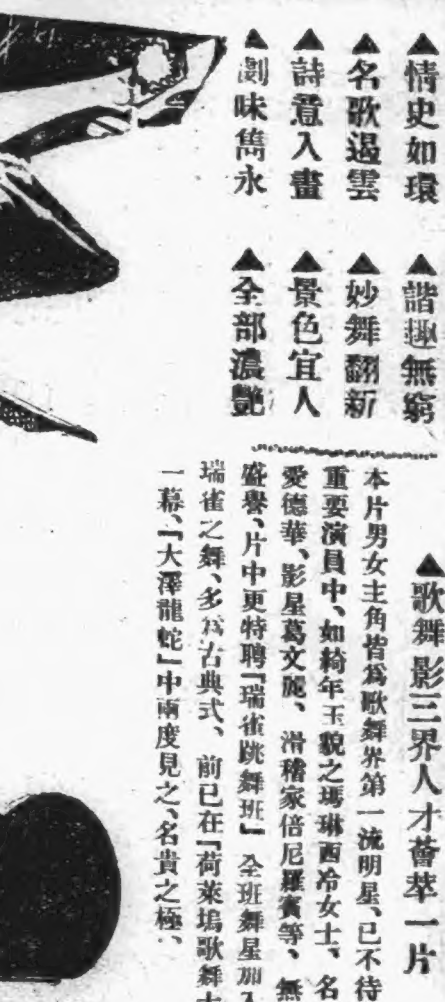 ▲情史如環　▲諧趣無窮
▲名歌遏雲　▲妙舞翻新
▲詩意入畫　▲景色宜人
▲劇味雋永　▲全部濃艷
▲歌舞影三界人才薈萃一片
本片男女主角皆爲歌舞界第一流明星、已不待
重要演員中、如綺年玉貌之瑪琳西冷女士、名
愛德華、影星葛文麗、滑稽家倍尼羅賓等、無
盛譽、片中更特聘『瑞雀跳舞班』全班舞星加入
瑞雀之舞、多爲古典式、前已在『荷萊塢歌舞大
一幕、『大澤龍蛇』中兩度見之、名貴之極、